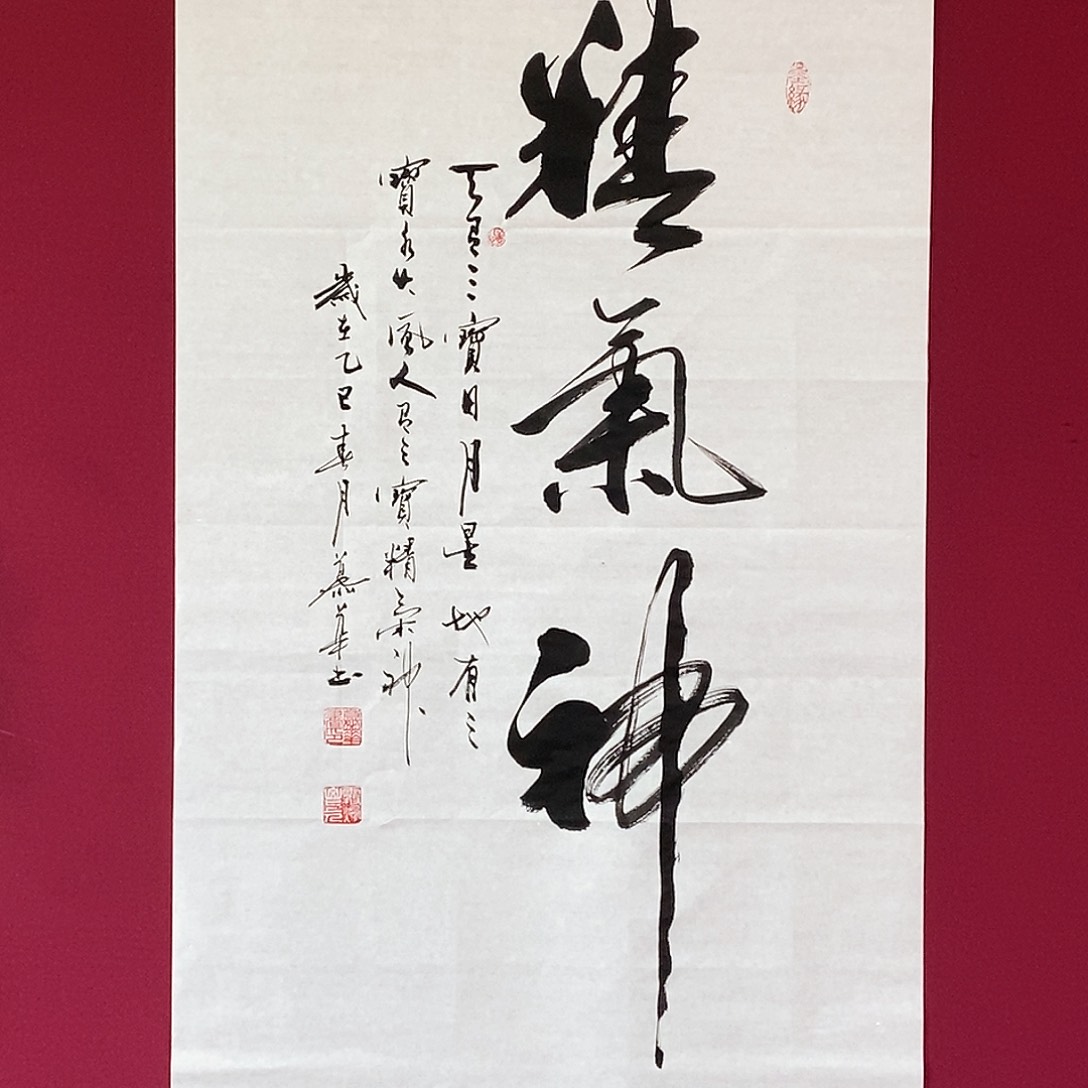 精氣神
天有三寶日月星地有三
寶水火風人有三寶精氣神
歲在乙巳春月慕華書